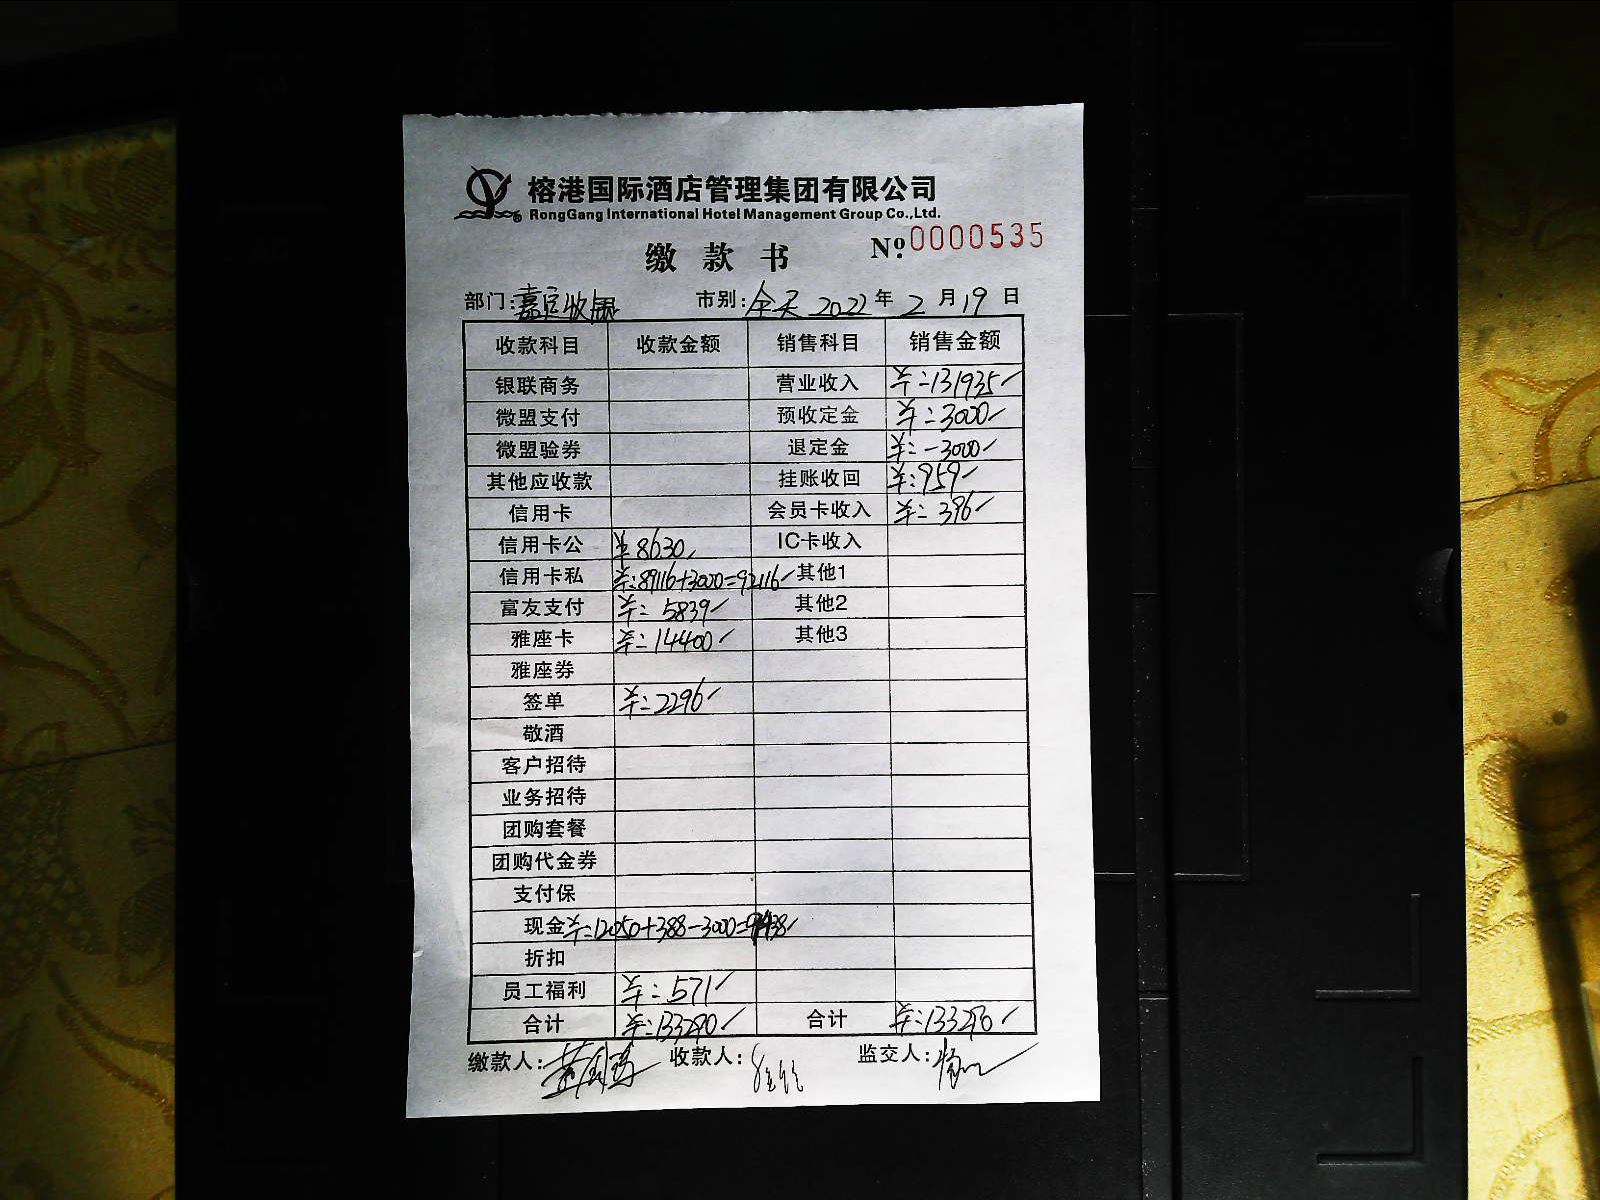 榕港国际酒店管理集团有限公司
RongGang International Hotel Management Group Co.,Ltd.
缴款书 Nº.0000535
部门:嘉定收银 市别:全天 2022年2月19日
收款科目 收款金额 销售科目 销售金额
银联商务 营业收入 ¥:131935
微盟支付 预收定金 ¥:3000
微盟验券 退定金 ¥:-3000
其他应收款 挂账收回 ¥:959
信用卡 会员卡收入 ¥:396
信用卡公 ¥8630 IC卡收入
信用卡私 ¥:89116+3000=92116 其他1
富友支付 ¥:5839 其他2
雅座卡 ¥:14400 其他3
雅座券
签单 ¥:2296
敬酒
客户招待
业务招待
团购套餐
团购代金券
支付保
现金 ¥:12050+388-3000=9438
折扣
员工福利 ¥:571
合计 ¥:133290 合计 ¥:133290
缴款人: 收款人: 监交人: